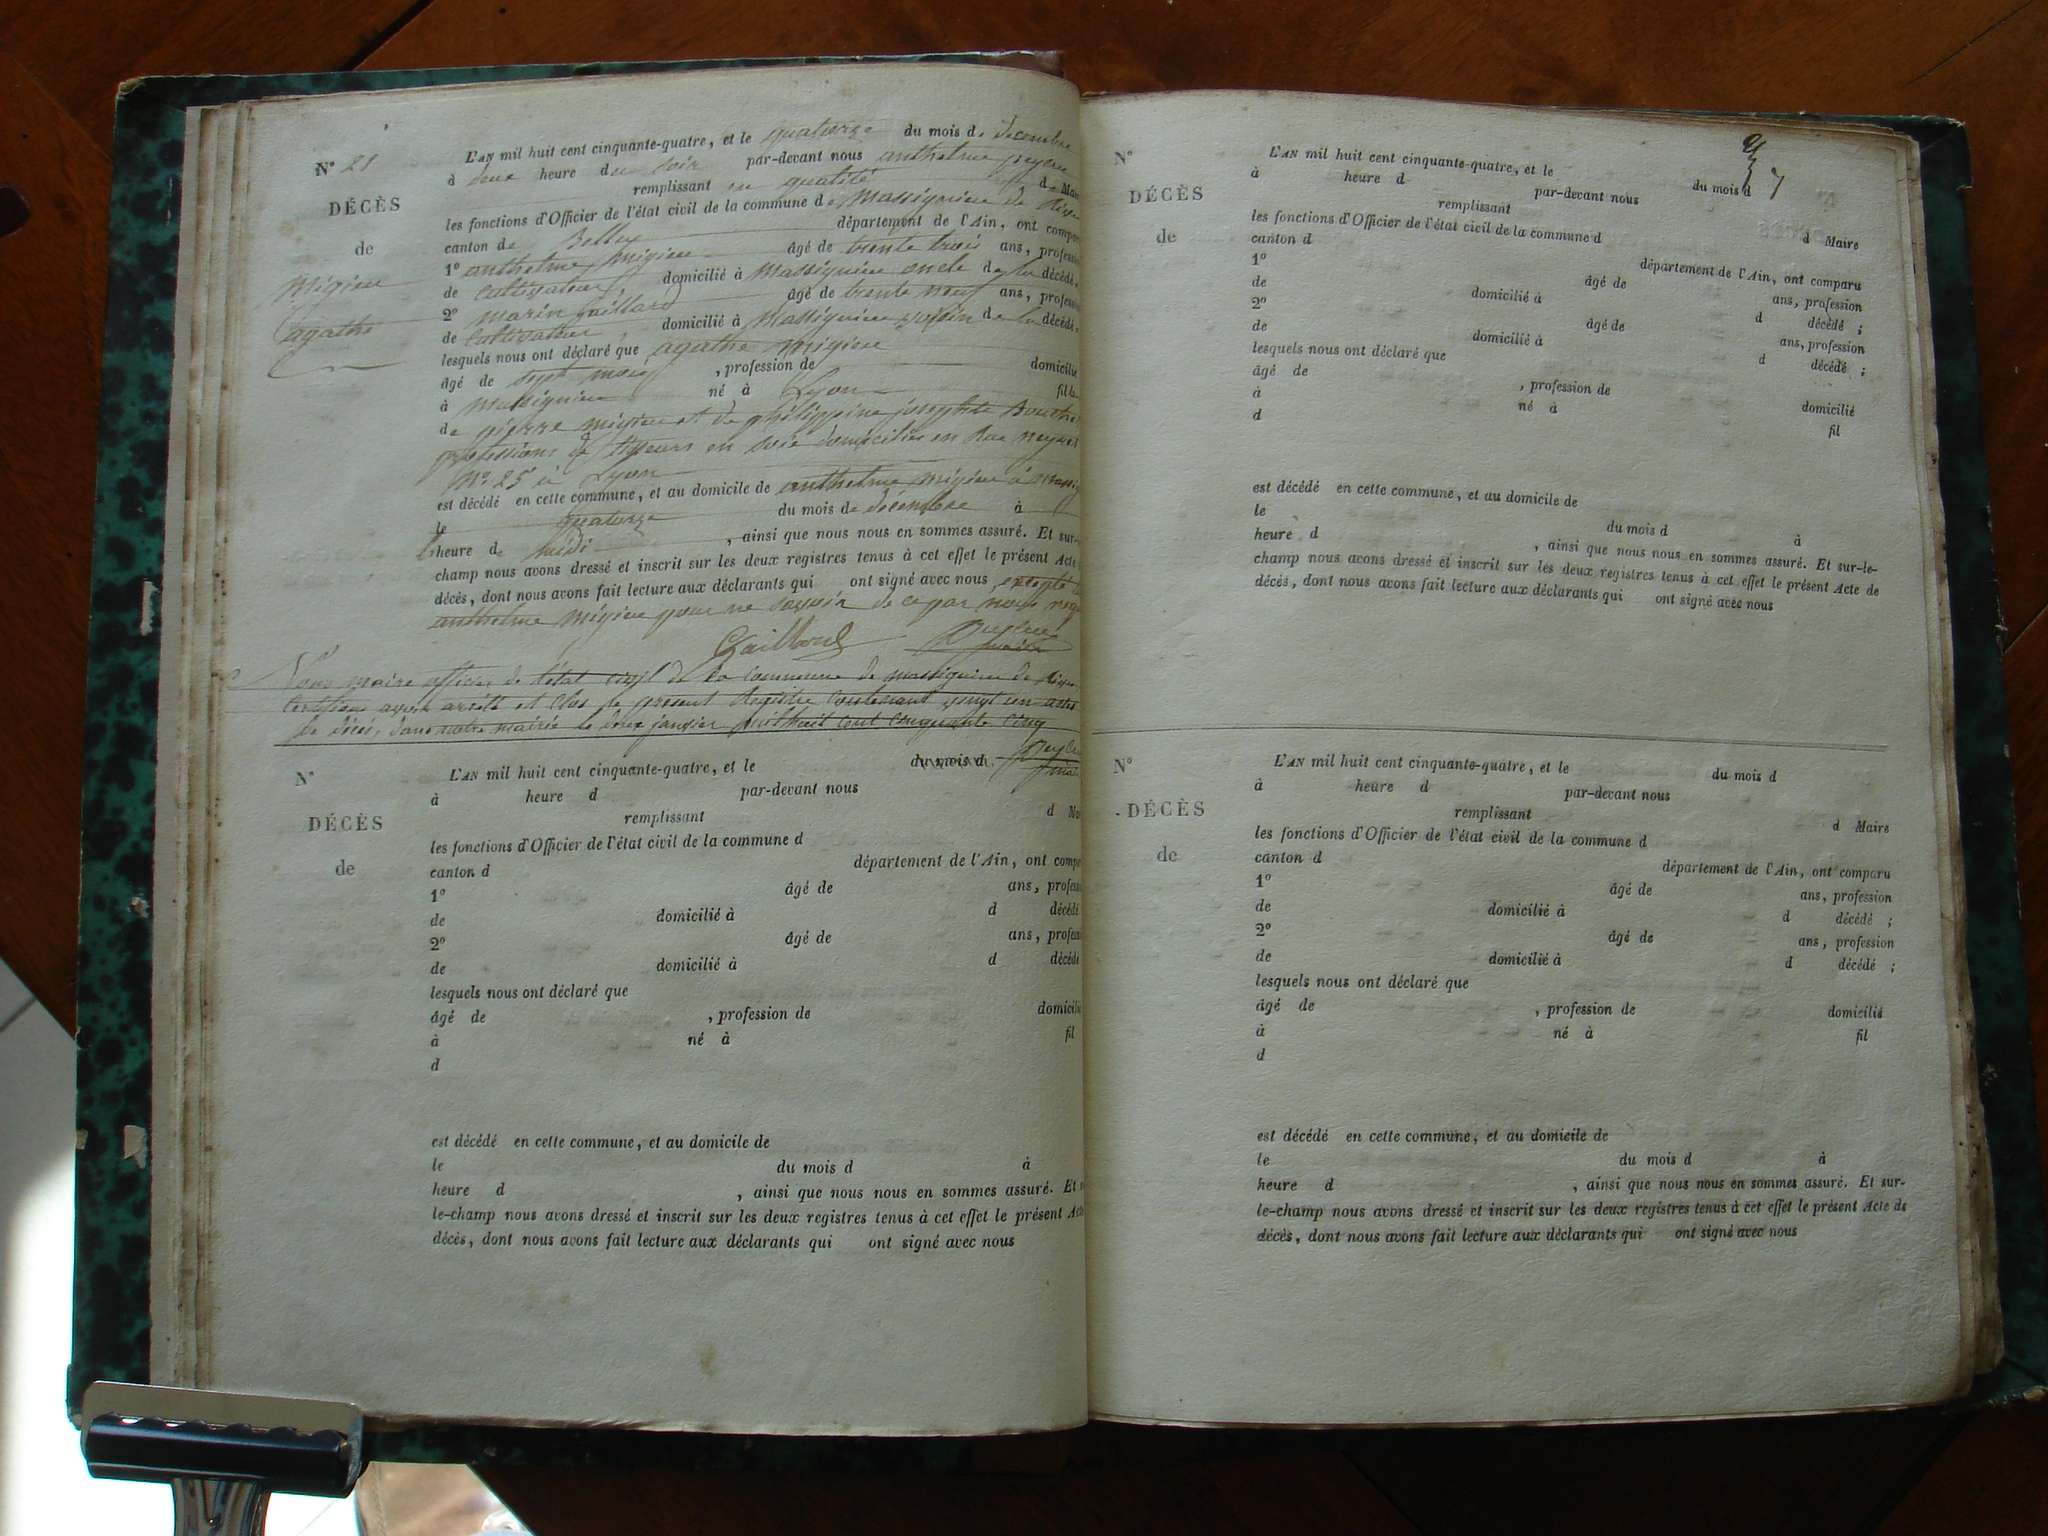 N° 21
DÉCÈS
de
Migieu
agathe
L'AN mil huit cent cinquante-quatre, et le quatorze du mois de decembre
à deux heure du soir par-devant nous anthelme
remplissant en qualité de Mair
les fonctions d'Officier de l'état civil de la commune de Massignieu de Rives
canton de Belley département de l'Ain, ont compar
1° anthelme migieu âgé de trente trois ans, profession
de cultivateur, domicilié à Massignieu oncle de la décédée
2° marin gaillard âgé de trente neuf ans, profession
de cultivateur domicilié à Massignieu voisin de la décédée
lesquels nous ont déclaré que agathe migieu
âgé de sept mois , profession de domicilié
à massignieu né à Lyon fille
de pierre migieu et de philippine josephte
professions de tisseurs en soie domiciliés en Rue
N° 25 à Lyon
est décédé en cette commune, et au domicile de anthelme migieu à massig
le quatorze du mois de décembre à
heure de midi , ainsi que nous nous en sommes assuré. Et sur-
champ nous avons dressé et inscrit sur les deux registres tenus à cet effet le présent Acte
décès, dont nous avons fait lecture aux déclarants qui ont signé avec nous excepté
anthelme migieu pour ne savoir de ce par nous requ
Gaillard
maire
Nous maire officier de l'état civil de la commune de massignieu de Rives
certifions avoir arrêté et clos le présent Registre contenant vingt un actes
de décès, dans notre mairie le deux janvier mil huit cent cinquante cinq
maire
N°
DÉCÈS
de
L'AN mil huit cent cinquante-quatre, et le du mois d
à heure d par-devant nous
remplissant d Mai
les fonctions d'Officier de l'état civil de la commune d
canton d département de l'Ain, ont compa
1° âgé de ans, profess
de domicilié à d décédé
2° âgé de ans, profess
de domicilié à d décédé
lesquels nous ont déclaré que
âgé de , profession de domicilié
à né à fil
d
est décédé en cette commune, et au domicile de
le du mois d à
heure d , ainsi que nous nous en sommes assuré. Et s
le-champ nous avons dressé et inscrit sur les deux registres tenus à cet effet le présent Acte
décès, dont nous avons fait lecture aux déclarants qui ont signé avec nous
7
N°
DÉCÈS
de
L'AN mil huit cent cinquante-quatre, et le du mois d
à heure d par-devant nous
remplissant d Maire
les fonctions d'Officier de l'état civil de la commune d
canton d département de l'Ain, ont comparu
1° âgé de ans, profession
de domicilié à d décédé ;
2° âgé de ans, profession
de domicilié à d décédé ;
lesquels nous ont déclaré que
âgé de , profession de domicilié
à né à fil
d
est décédé en cette commune, et au domicile de
le du mois d à
heure d , ainsi que nous nous en sommes assuré. Et sur-le-
champ nous avons dressé et inscrit sur les deux registres tenus à cet effet le présent Acte de
décès, dont nous avons fait lecture aux déclarants qui ont signé avec nous
N°
DÉCÈS
de
L'AN mil huit cent cinquante-quatre, et le du mois d
à heure d par-devant nous
remplissant d Maire
les fonctions d'Officier de l'état civil de la commune d
canton d département de l'Ain, ont comparu
1° âgé de ans, profession
de domicilié à d décédé ;
2° âgé de ans, profession
de domicilié à d décédé ;
lesquels nous ont déclaré que
âgé de , profession de domicilié
à né à fil
d
est décédé en cette commune, et au domicile de
le du mois d à
heure d , ainsi que nous nous en sommes assuré. Et sur-
le-champ nous avons dressé et inscrit sur les deux registres tenus à cet effet le présent Acte de
décès, dont nous avons fait lecture aux déclarants qui ont signé avec nous